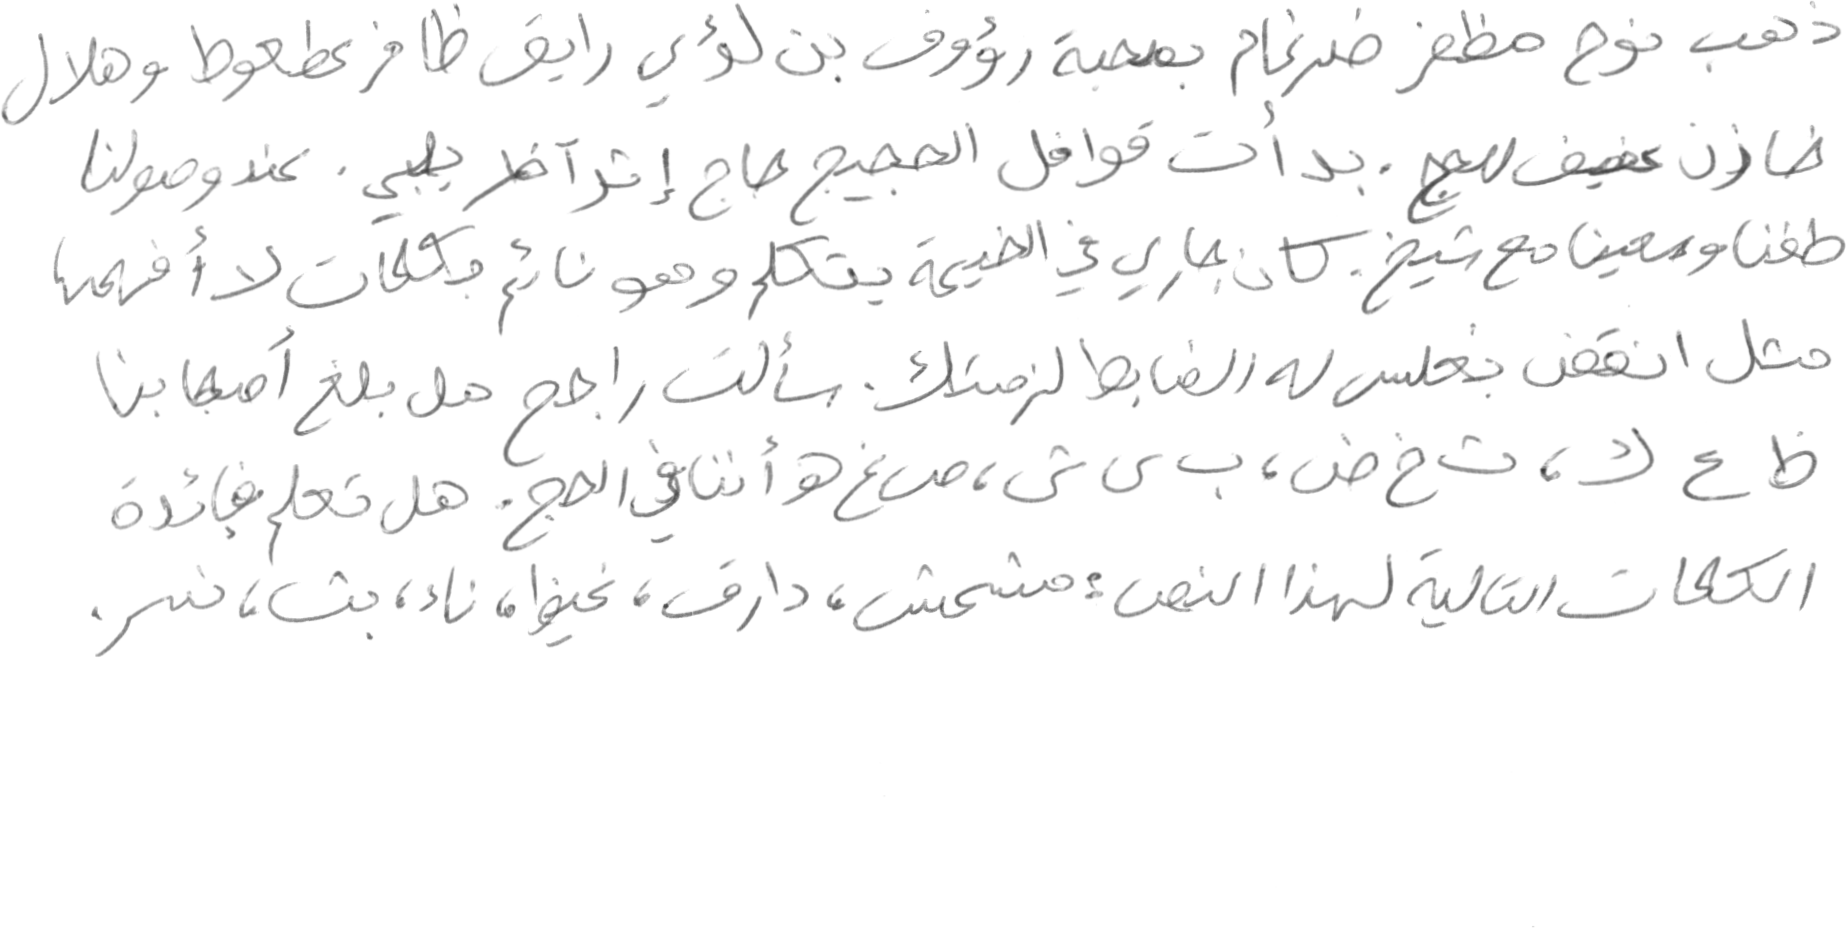 ذهب نوح مظفر ضرغام بصحبة رؤوف بن لؤي رايق ظافر عطعوط وهلال
خازن عفيف للحج . بدأت قوافل الحجيج حاج إثر آخر يلبي . عند وصولنا
طفنا وسعينا مع شيخ . كان جاري في الخيمة يتكلم وهو نائم بكلمات لا أفهمها
مثل انقض بغلس له الضابط لزمتك . سألت راجح هل بلغ أصحابنا
ظ ع ك ، ث خ ض ، ب س ش ، ص غ هـ أننا في الحج . هل تعلم فائدة
الكلمات التالية لهذا النص : مشمش ، دارق ، نحيوا ، ناء ، بث ، نسر .